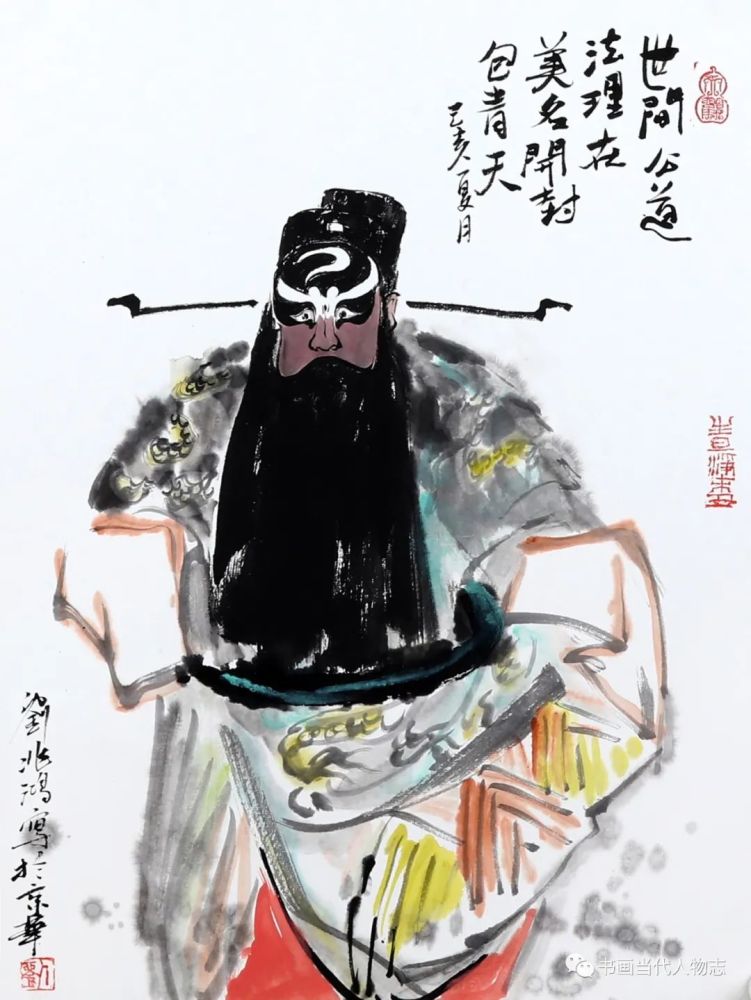 世間公道
法理在
美名開封
包青天
己亥夏月
生旦淨末丑
劉兆鴻寫於京華
书画当代人物志